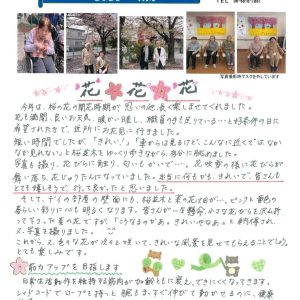 TEL
写真撮影時マスクを外しています
花 花 花
今月は、桜の花の開花時期が思いの他、長く楽しませてくれました。
花も満開、良いお天気、暖かい日差し、職員の手も足りている…と好条件の日に
希望された方で、近所にお花見に行きました。
短い時間でしたが「きれい!」「車からは見るけど、こんなに近くではなか
なか見れない」と桜並木をゆっくり歩きながら、存分に眺めました。
写真も撮り、花がらに触り、匂いもかいで…。花吹雪の様に花びらが
舞い落ち、花じゅうたんになっていました。本当に何もかも、きれいで、皆さんも
とても嬉しそうで、行って良かったと思いました。
そして、デイの部屋の壁面にも、桜並木と菜の花畑が…。ピンクと黄色の
春らしい彩りに心も明るくなります。皆さんが一生懸命、小さな花から大きな花
って下さった春の花ですが、「こうなるのかあ。きれいやなあ。」と納得され、
又、写真を撮りました。
これから、又、色々な花が次々と咲いて、きれいな風景を見せてもらえることでしょう。
とても楽しみです。
筋力アップを目指します
日常生活動作を維持する筋肉が加齢と共に衰え、できにくくなってきます。
レッドコードで ロープを持って 腕もまっすぐ伸ばして動かせるのに、健康